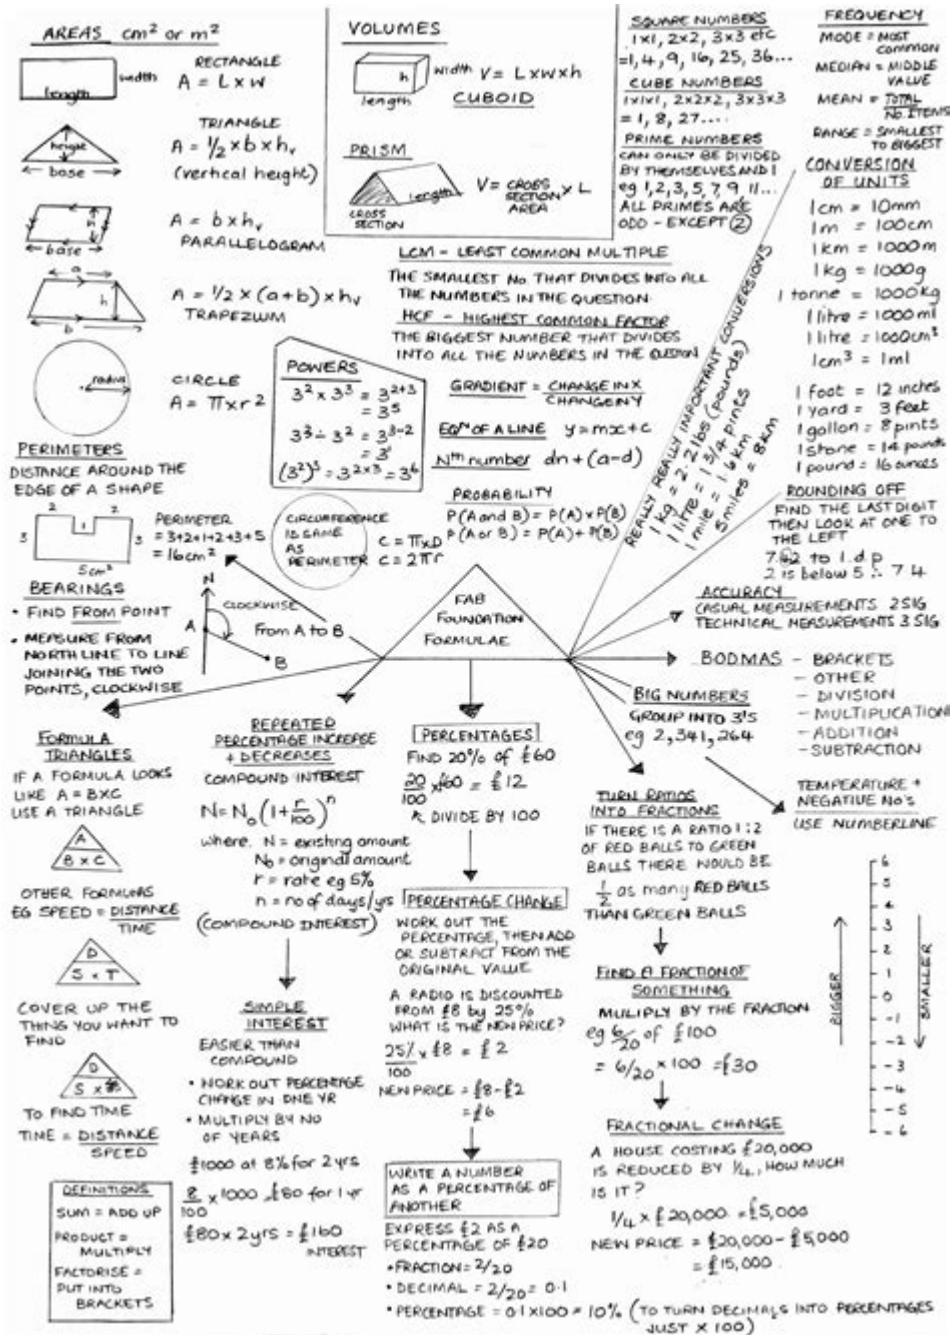 AREAS cm² or m²
RECTANGLE
width
length
A = L x w
TRIANGLE
height
base
A = 1/2 x b x hv
(vertical height)
base
A = b x hv
PARALLELOGRAM
a
h
b
A = 1/2 x (a+b) x hv
TRAPEZIUM
radius
CIRCLE
A = π x r²
PERIMETERS
DISTANCE AROUND THE
EDGE OF A SHAPE
2 2
3 1 3
5cm²
PERIMETER
= 3+2+1+2+3+5
= 16cm²
BEARINGS
• FIND FROM POINT
• MEASURE FROM
NORTH LINE TO LINE
JOINING THE TWO
POINTS, CLOCKWISE
N
CLOCKWISE
A
From A to B
B
VOLUMES
h
width
length
V = L x w x h
CUBOID
PRISM
length
CROSS
SECTION
V = CROSS SECTION AREA x L
LCM - LEAST COMMON MULTIPLE
THE SMALLEST No. THAT DIVIDES INTO ALL
THE NUMBERS IN THE QUESTION
HCF - HIGHEST COMMON FACTOR
THE BIGGEST NUMBER THAT DIVIDES
INTO ALL THE NUMBERS IN THE QUESTION
POWERS
3² x 3³ = 3²⁺³
= 3⁵
3³ ÷ 3² = 3³⁻²
= 3¹
(3²)³ = 3²ˣ³ = 3⁶
GRADIENT = CHANGE IN X
CHANGE IN Y
EQⁿ OF A LINE y = mx + c
Nth number dn + (a-d)
PROBABILITY
P(A and B) = P(A) x P(B)
P(A or B) = P(A) + P(B)
CIRCUMFERENCE
IS SAME
AS
PERIMETER
C = π x D
C = 2πr
SQUARE NUMBERS
1x1, 2x2, 3x3 etc
= 1, 4, 9, 16, 25, 36...
CUBE NUMBERS
1x1x1, 2x2x2, 3x3x3
= 1, 8, 27....
PRIME NUMBERS
CAN ONLY BE DIVIDED
BY THEMSELVES AND 1
eg 1, 2, 3, 5, 7, 9 11...
ALL PRIMES ARE
ODD - EXCEPT 2
REALLY REALLY IMPORTANT CONVERSIONS
1kg = 2.2 lbs (pounds)
1 litre = 1 3/4 pints
1 mile = 1.6 km
5 miles = 8km
FREQUENCY
MODE = MOST
COMMON
MEDIAN = MIDDLE
VALUE
MEAN = TOTAL
No. ITEMS
RANGE = SMALLEST
TO BIGGEST
CONVERSION
OF UNITS
1cm = 10mm
1m = 100cm
1km = 1000m
1kg = 1000g
1 tonne = 1000kg
1 litre = 1000ml
1 litre = 1000cm³
1cm³ = 1ml
1 foot = 12 inches
1 yard = 3 feet
1 gallon = 8 pints
1 stone = 14 pounds
1 pound = 16 ounces
ROUNDING OFF
FIND THE LAST DIGIT
THEN LOOK AT ONE TO
THE LEFT
7.42 to 1.d.p
2 is below 5 ∴ 7.4
ACCURACY
CASUAL MEASUREMENTS 2 SIG
TECHNICAL MEASUREMENTS 3 SIG
FAB
FOUNDATION
FORMULAE
BODMAS - BRACKETS
- OTHER
- DIVISION
- MULTIPLICATION
- ADDITION
- SUBTRACTION
BIG NUMBERS
GROUP INTO 3'S
eg 2,341,264
TEMPERATURE +
NEGATIVE No's
USE NUMBERLINE
BIGGER
6
5
4
3
2
1
0
-1
-2
-3
-4
-5
-6
SMALLER
FORMULA
TRIANGLES
IF A FORMULA LOOKS
LIKE A = BXC
USE A TRIANGLE
A
B x C
OTHER FORMULAS
EG SPEED = DISTANCE
TIME
D
S x T
COVER UP THE
THING YOU WANT TO
FIND
D
S x
TO FIND TIME
TIME = DISTANCE
SPEED
DEFINITIONS
SUM = ADD UP
PRODUCT =
MULTIPLY
FACTORISE =
PUT INTO
BRACKETS
REPEATED
PERCENTAGE INCREASE
+ DECREASES
COMPOUND INTEREST
N = N₀(1 + r/100)ⁿ
where, N = existing amount
N₀ = original amount
r = rate eg 5%
n = no of days/yrs
(COMPOUND INTEREST)
SIMPLE
INTEREST
EASIER THAN
COMPOUND
• WORK OUT PERCENTAGE
CHANGE IN ONE YR
• MULTIPLY BY NO
OF YEARS
£1000 at 8% for 2 yrs
8/100 x 1000 = £80 for 1 yr
£80 x 2 yrs = £160
INTEREST
PERCENTAGES
FIND 20% of £60
20/100 x £60 = £12
DIVIDE BY 100
PERCENTAGE CHANGE
WORK OUT THE
PERCENTAGE, THEN ADD
OR SUBTRACT FROM THE
ORIGINAL VALUE
A RADIO IS DISCOUNTED
FROM £8 by 25%
WHAT IS THE NEW PRICE?
25%/100 x £8 = £2
NEW PRICE = £8 - £2
= £6
WRITE A NUMBER
AS A PERCENTAGE OF
ANOTHER
EXPRESS £2 AS A
PERCENTAGE OF £20
• FRACTION = 2/20
• DECIMAL = 2/20 = 0.1
• PERCENTAGE = 0.1 x 100 = 10% (TO TURN DECIMALS INTO PERCENTAGES
JUST x 100)
TURN RATIOS
INTO FRACTIONS
IF THERE IS A RATIO 1:2
OF RED BALLS TO GREEN
BALLS THERE WOULD BE
1/2 as many RED BALLS
THAN GREEN BALLS
FIND A FRACTION OF
SOMETHING
MULIPLY BY THE FRACTION
eg 6/20 of £100
= 6/20 x 100 = £30
FRACTIONAL CHANGE
A HOUSE COSTING £20,000
IS REDUCED BY 1/4, HOW MUCH
IS IT?
1/4 x £20,000 = £5,000
NEW PRICE = £20,000 - £5,000
= £15,000